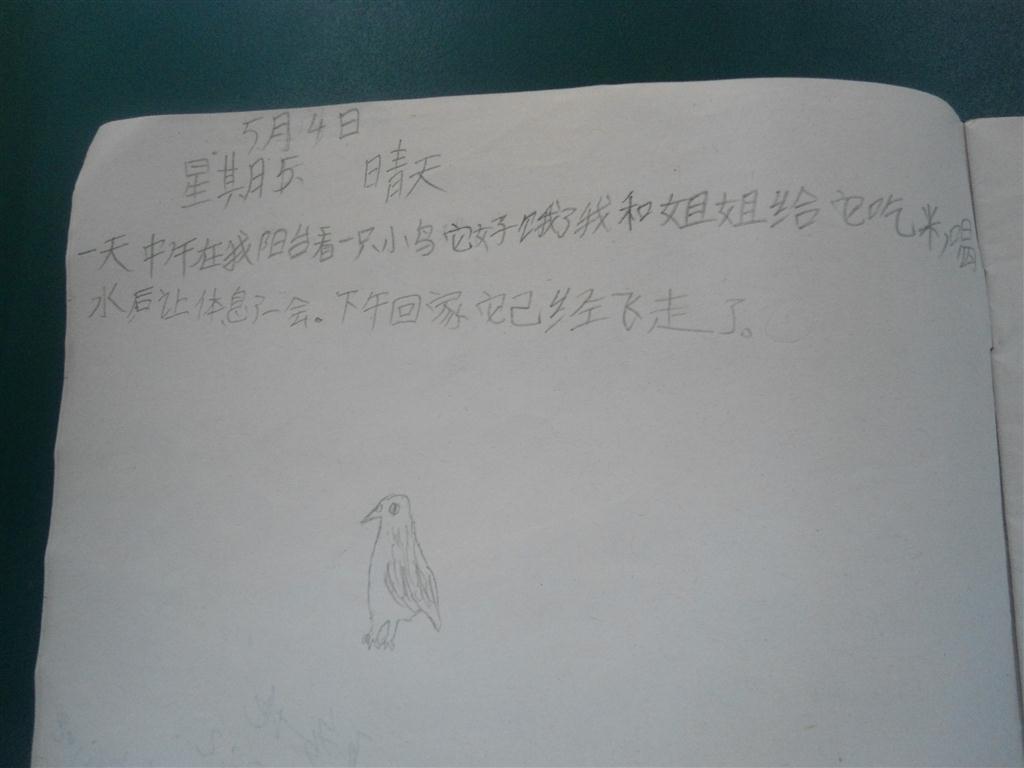 5月4日
星期五 晴天
一天中午在我阳台看一只小鸟它好饿了我和姐姐给它吃米喝
水后让体息了一会。下午回家它已经飞走了。